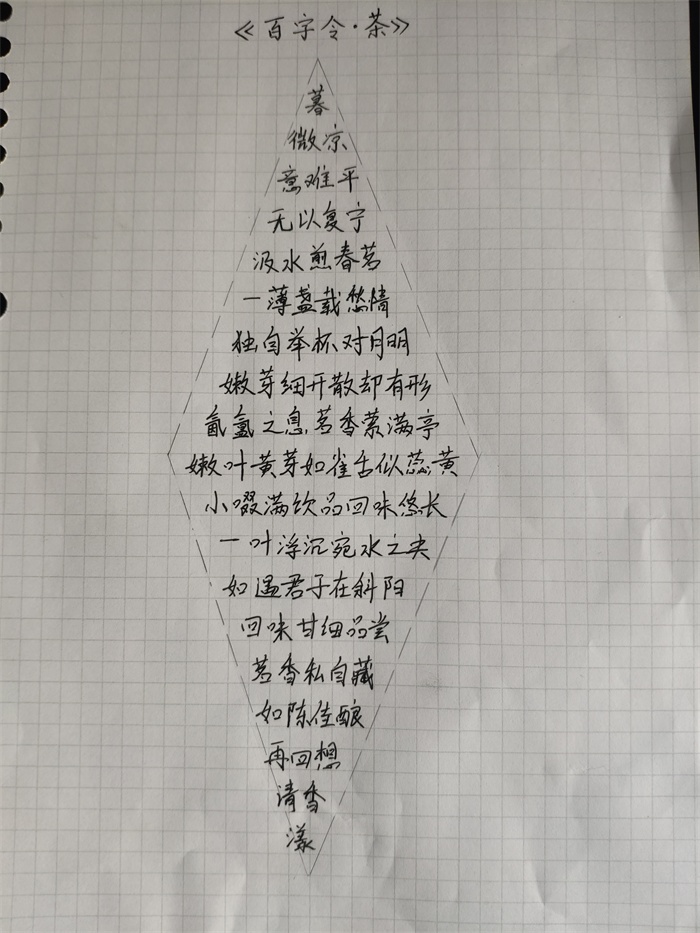 《百字令·茶》
暮
微凉
意难平
无以复宁
汲水煎春茗
一薄盏载愁情
独自举杯对月明
嫩芽细开散却有形
氤氲之息茗香萦满亭
嫩叶黄芽如雀舌似蕊黄
小啜满饮品回味悠长
一叶浮沉宛水之央
如遇君子在斜阳
回味甘细品尝
茗香私自藏
如陈佳酿
再回想
清香
漾